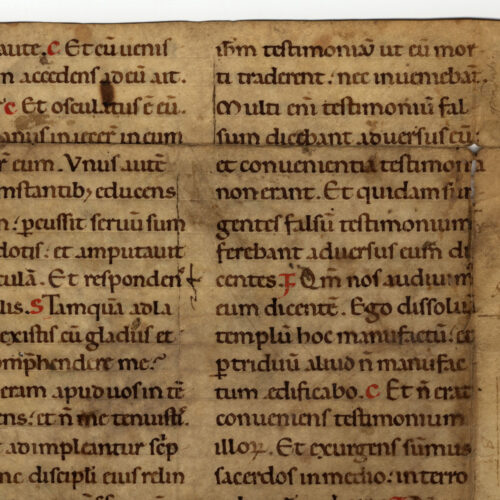 aute. c Et cū uenis
n accedens ad eū ait.
c Et osculatus ē eū.
anus iniecer̄ in eum
r̄ eum. Vnus autē
mstantibꝫ educens
n: ꝑcussit seruū sum
dotis: et amputauit
culā. Et responden
lis. S Tamquā ad la
existis cū gladiis et
omp̄hendere me:
eram apud uos in tē
ens: et n̄ me tenuisti.
t adimpleantur sc̄p
nc discipli eius relin
ih̄m testimoniū ut eū mor
ti traderent: nec inueniebāt.
Multi eni testimoniū fal
sum dicebant aduersus eū:
et conuenientia testimonia
non erant. Et quidam sur
gentes falsū testimonium
ferebant aduersus eum di
centes. Qm̄ nos audiuim
eum dicentē. Ego dissoluā
templū hoc manufactū: et
ꝑ triduū aliud n̄ manufac
tum edificabo. c Et n̄ erat
conueniens testimonium
illoꝝ. Et exurgens summus
sacerdos in medio: interro